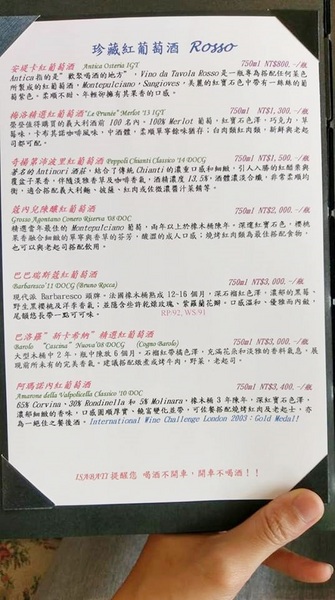 珍藏紅葡萄酒 Rosso
安緹卡紅葡萄酒 Antica Osteria IGT 750ml NT$800.-/瓶
Antica指的是"歡聚喝酒的地方"，Vino da Tavola Rosso是一瓶專為搭配任何菜色
所製成的紅葡萄酒，Montepulciano, Sangioves，美麗的紅寶石色中帶有一絲絲的葡
萄紫色，柔順不甜、年輕卻擁有其果香的口感。
梅洛精選紅葡萄酒 "Le Prunée" Merlot '13 IGT 750ml NT$1,300.-/瓶
最受信任購買的義大利酒前 100 名內，100% Merlot 葡萄，紅寶石色澤，巧克力，草
莓味，卡布其諾咖啡風味，中酒體，柔順單寧餘味猶存；白肉類紅肉類，新鮮與老起
司都可配。
奇揚第沛波里紅葡萄酒 Peppoli Chianti Classico '14 DOCG 750ml NT$1,500.-/瓶
著名的 Antinori 酒莊，結合了傳統 Chianti 的濃重口感和細緻，引人入勝的紅醋栗與
覆盆子果香，伴隨淡雅香草及咖啡香氣，酒精濃度 13.5%，酒體濃淡合纖，非常柔順均
衡，適合搭配義大利麵、披薩、紅肉或佐微濃醬汁菜餚等。
蔻內兒陳釀紅葡萄酒 750ml NT$2,000.-/瓶
Grosso Agontano Conero Riserva '08 DOC
精選當年最佳的 Montepulciano 葡萄，兩年以上於橡木桶陳年。深邃紅寶石色，櫻桃
果香融合細緻的單寧與香草的芬芳，釀溫的成人口感；燒烤紅肉類為最佳搭配食物，
也可以與老起司搭配飲用。
巴巴瑞斯蔻紅葡萄酒 750ml NT$3,000.-/瓶
Barbaresco'11 DOCG (Bruno Rocca)
現代派 Barbaresco 鐵牌。法國橡木桶熟成 12-16 個月，深石榴紅色澤，濃郁的黑莓、
野生黑櫻桃及洋李香氣；並隱含些許乾燥玫瑰、紫羅蘭花瓣。口感溫和、優雅而內斂，
尾韻悠長帶一點可可味。 RP:92, WS:91
巴洛羅"新卡希納"精選紅葡萄酒 750ml NT$3,000.-/瓶
Barolo "Cascina" Nuova'08 DOCG (Cogno Barolo)
大型木桶中 2 年，瓶中陳放 6 個月，石榴紅帶橘色澤，充滿花朵和淡雅的香料氣息，展
現前所未有的完美香氣。建議搭配燉煮或烤牛肉，野菜，老起司。
阿瑪諾內紅葡萄酒 750ml NT$3,400.-/瓶
Amarone della Valpolicella Classico '10 DOC
65% Corvina、30% Rondinella 和 5% Molinara，橡木桶 3 年陳年，深紅寶石色澤，
濃郁細緻的香味，口感圓順厚實、饒富變化並帶，可佐餐搭配燒烤紅肉及老起士，亦
為一絕佳之餐後酒。International Wine Challenge London 2003：Gold Medal!
ISABATI 提醒您 喝酒不開車，開車不喝酒！！